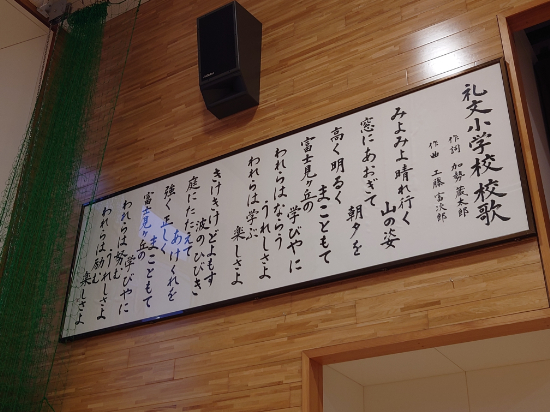 礼文小学校校歌
作詞 加勢蔵太郎
作曲 工藤富次郎
みよみよ晴れ行く
山の姿
窓にあおぎて
朝夕を
高く明るく
まこともて
富士見ヶ丘の
学びやに
われらはならう
うれしさよ
われらは学ぶ
楽しさよ
きけきけどよもす
波のひびき
庭にたたえて
あけくれを
強く正しく
まこともて
富士見ヶ丘の
学びやに
われらは努む
うれしさよ
われらは励む
楽しさよ